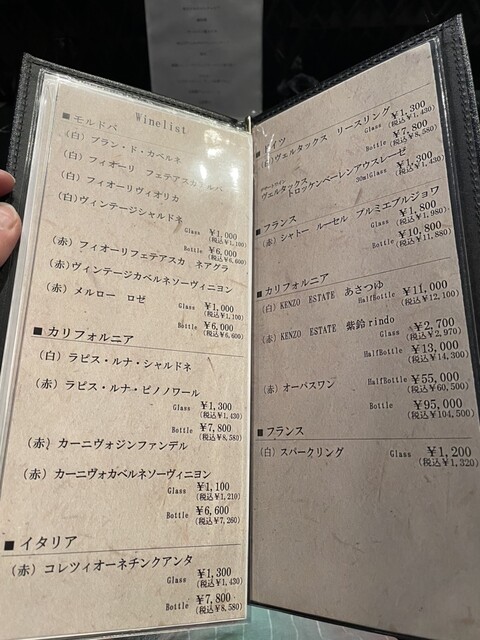 Winelist
■モルドバ
(白) ブラン・ド・カベルネ
(白) フィオーリ フェテアスカアルバ
(白) フィオーリヴィオリカ
(白)ヴィンテージシャルドネ
Glass ¥1,000
(税込¥1,100)
Bottle ¥6,000
(税込¥6,600)
(赤) フィオーリフェテアスカ ネアグラ
(赤)ヴィンテージカベルネソーヴィニヨン
(赤) メルロー ロゼ
Glass ¥1,000
(税込¥1,100)
Bottle ¥6,000
(税込¥6,600)
■カリフォルニア
(白) ラピス・ルナ・シャルドネ
(赤) ラピス・ルナ・ピノノワール
Glass ¥1,300
(税込¥1,430)
Bottle ¥7,800
(税込¥8,580)
(赤) カーニヴォジンファンデル
(赤) カーニヴォカベルネソーヴィニヨン
Glass ¥1,100
(税込¥1,210)
Bottle ¥6,600
(税込¥7,260)
■イタリア
(赤) コレツィオーネチンクアンタ
Glass ¥1,300
(税込¥1,430)
Bottle ¥7,800
(税込¥8,580)
■ドイツ
(白)ヴェルタックス リースリング
Glass ¥1,300
(税込¥1,430)
Bottle ¥7,800
(税込¥8,580)
デザートワイン
ヴェルタックス
トロッケンベーレンアウスレーゼ
30mlGlass ¥1,300
(税込¥1,430)
■フランス
(赤) シャトー ルーセル プルミエブルジョワ
Glass ¥1,800
(税込¥1,980)
Bottle ¥10,800
(税込¥11,880)
■カリフォルニア
(白) KENZO ESTATE あさつゆ
HalfBottle ¥11,000
(税込¥12,100)
(赤) KENZO ESTATE 紫鈴rindo
Glass ¥2,700
(税込¥2,970)
HalfBottle ¥13,000
(税込¥14,300)
(赤) オーパスワン HalfBottle ¥55,000
(税込¥60,500)
Bottle ¥95,000
(税込¥104,500)
■フランス
(白) スパークリング Glass ¥1,200
(税込¥1,320)